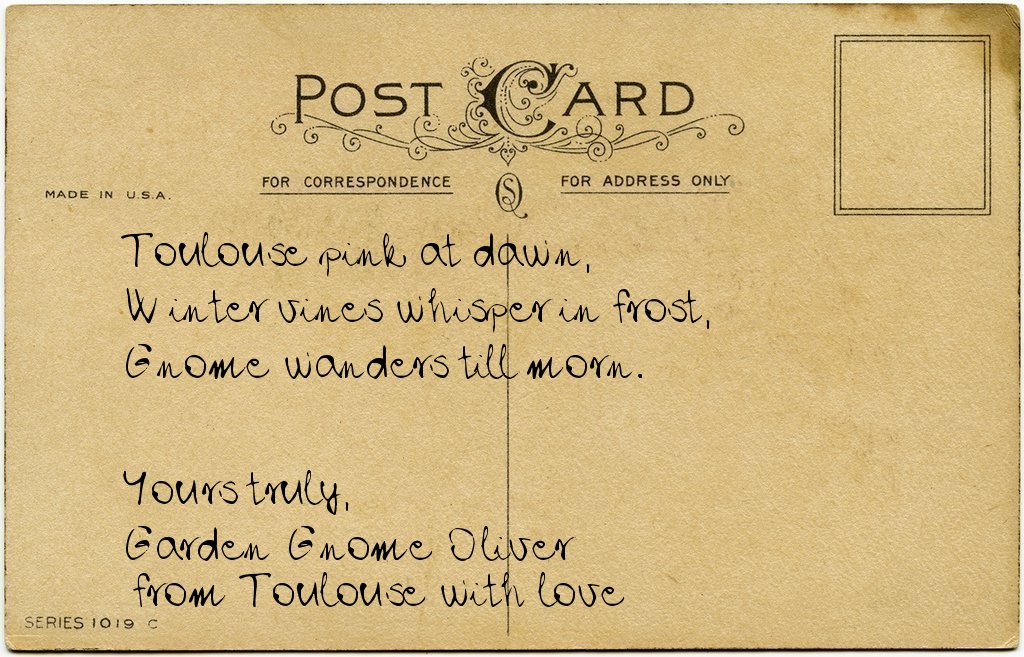 POST CARD
FOR CORRESPONDENCE
FOR ADDRESS ONLY
MADE IN U.S.A.
Toulouse pink at dawn,
Winter vines whisper in frost,
Gnome wanders till morn.
Yours truly,
Garden Gnome Oliver
from Toulouse with love
SERIES 1019 C